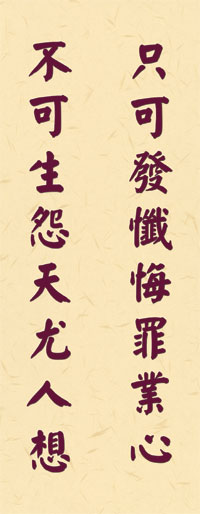 只可發懺悔罪業心
不可生怨天尤人想